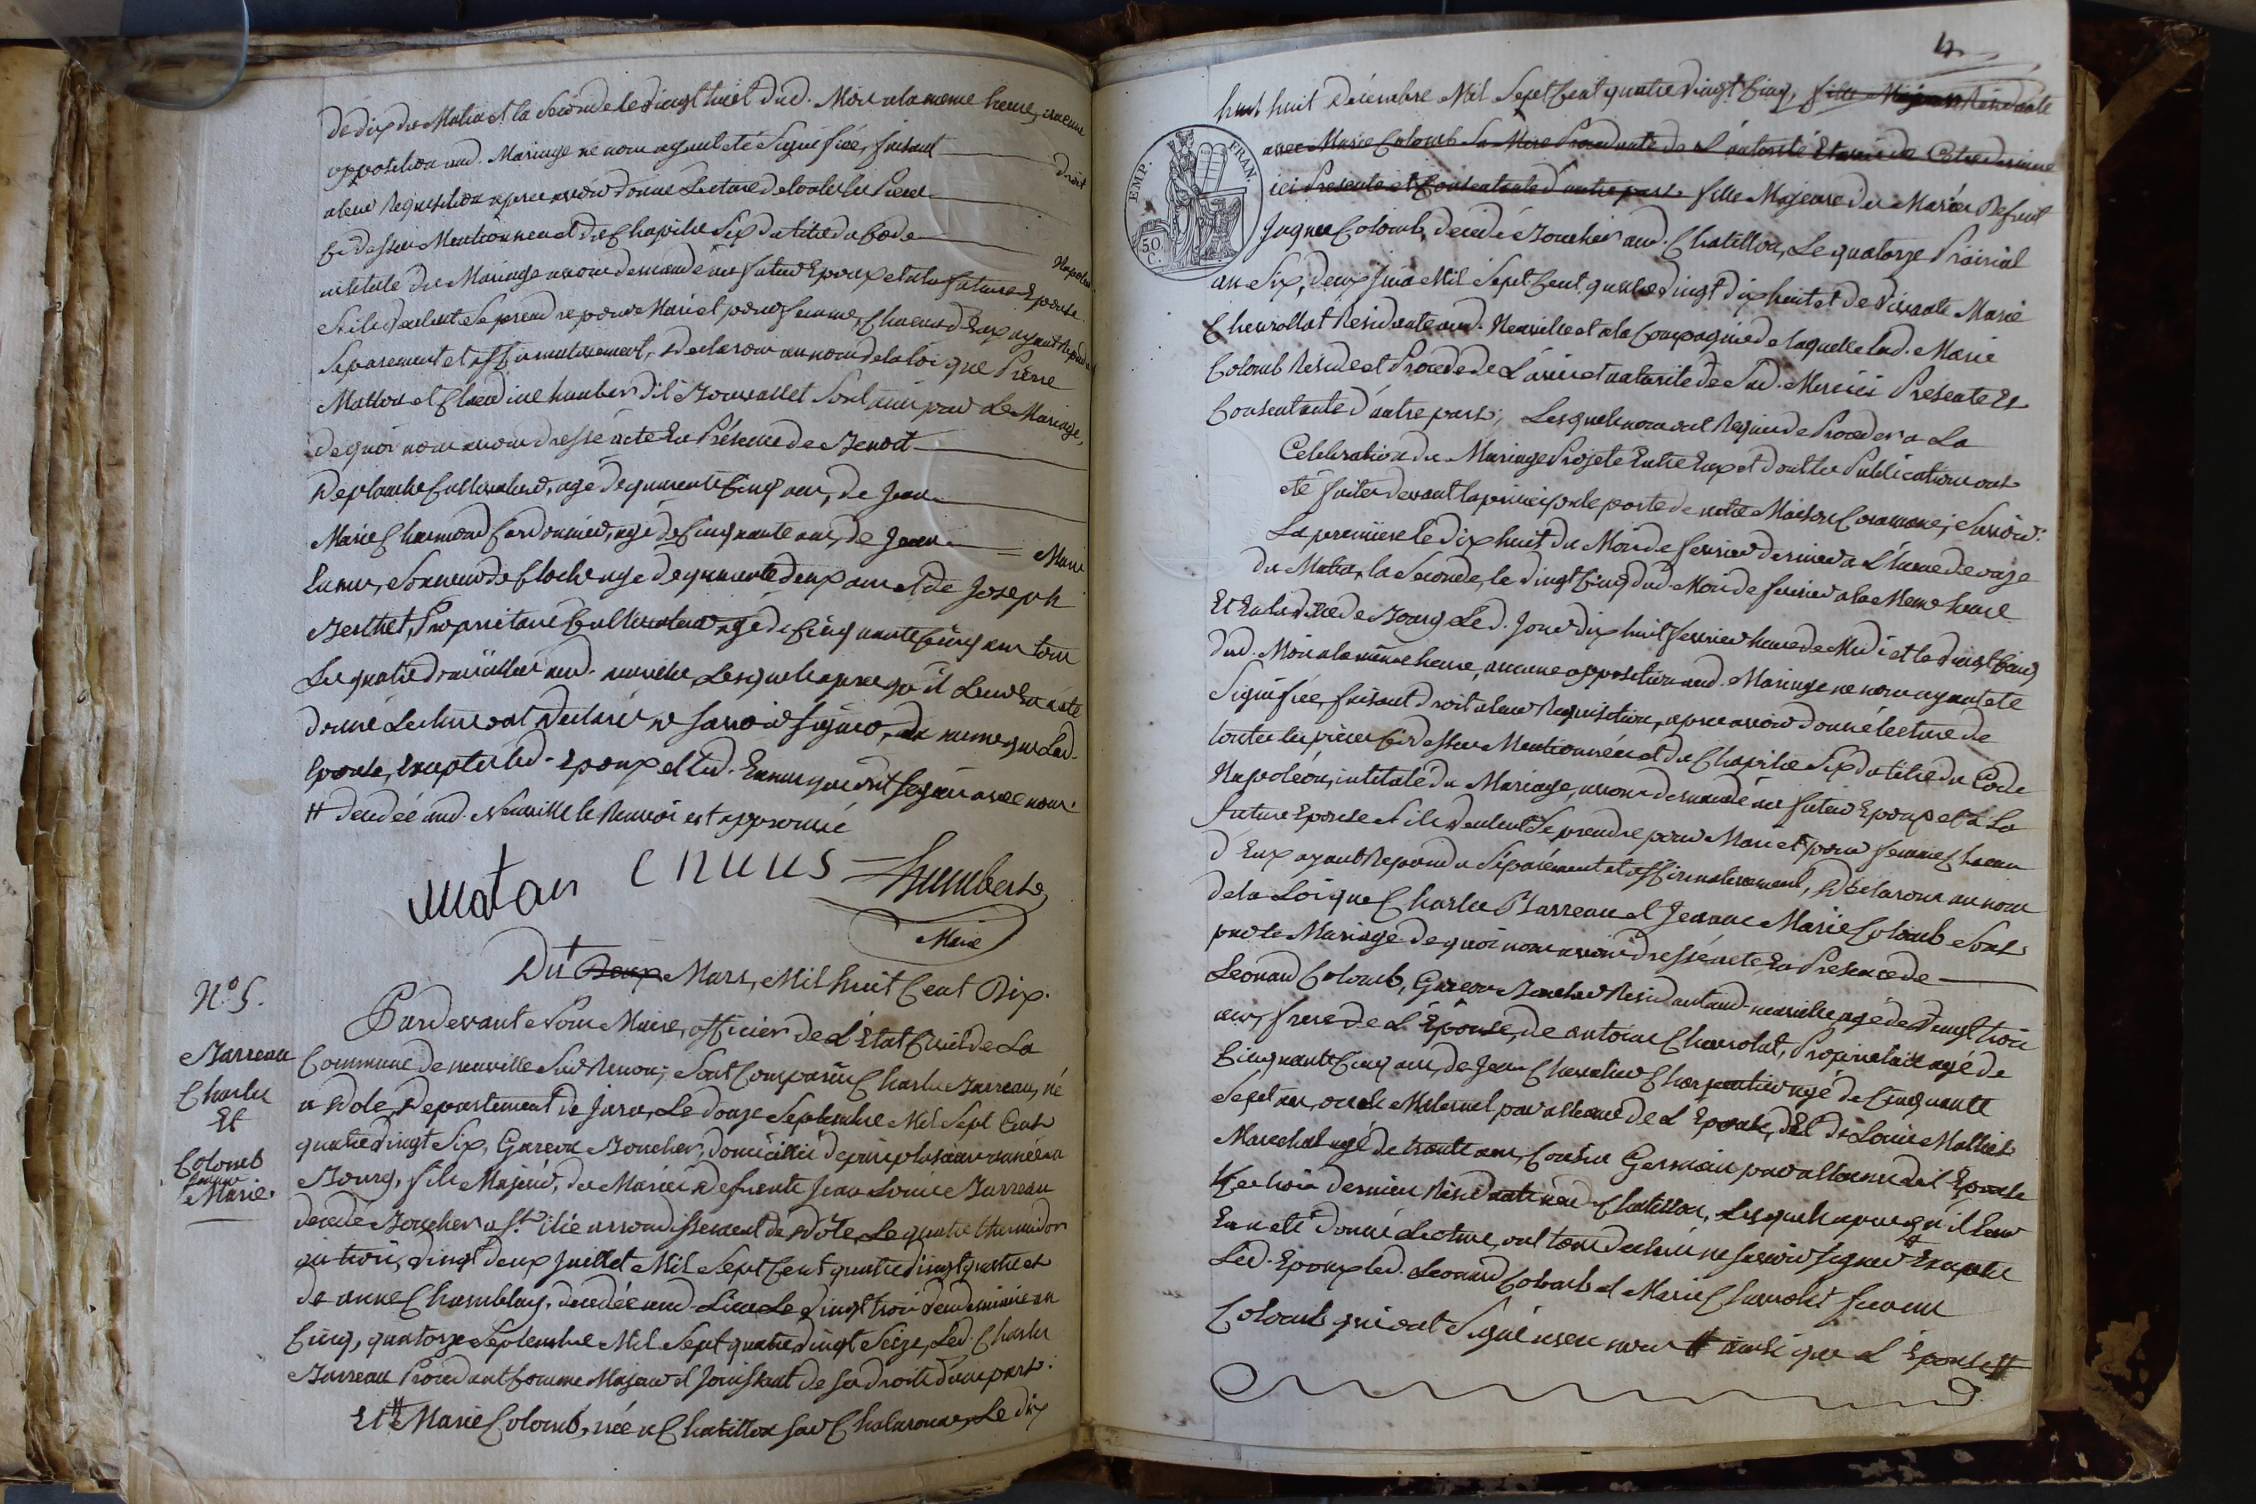 de dix du Matin et la seconde le vingt huit dud. Mois a la meme heure, aucune
opposition aud. Mariage ne nous ayant eté signifiée, faisant droit
a leur Requisition apres avoir donné Lecture de toutes les Pieces
ci dessus Mentionnées et du Chapitre Six du titre du Code Napoleon
intitulé du Mariage avons demandé au futur Epoux et a la future Epouse
s'ils veulent se prendre pour Mari et pour femme, Chacun d'Eux ayant Repondu
separement et affirmativement, Declarons au nom de la loi que Pierre
Mathon et Claudine humber dit Bourvallet sont unis par Le Mariage,
de quoi nous avons dressé acte En Présence de Benoit
Deplanche Cultivateur, agé de quarante cinq ans, de Jean
Marie Charmond Cordonnier, agé de cinquante ans, de Jean Marie
Ennus, Sonneur de Cloche agé de quarante deux ans et de Joseph
Berthet, Proprietaire Cultivateur agé de cinquante cinq ans tous
Les quatre domiciliés aud. neuville, Lesquels apres qu'il Leur En a eté
donné Lecture ont Declaré ne savoir signer, de meme que Lad.
Epouse, Excepté led. Epoux et led. Ennus qui ont signé avec nous.
# decedée aud. Neuville le Renvoi est approuvé
Matan Enuus Humbert
Maire
Du Deux Mars, Mil huit Cent Dix.
N.o 5.
Barreau
Charles
Et
Colomb
Jeanne
Marie.
Pardevant Nous Maire, officier de L'Etat Civil de La
Commune de neuville sur Renon; sont Comparus Charles Barreau, né
a Dole, Departement du Jura, Le douze Septembre Mil Sept Cent
quatre vingt Six, Garcon Boucher, domicilié depuis plusieurs années a
Bourg, fils Majeur, du Mariée Defunte Jean Louis Barreau
decedé Boucher a St. ilie arrondissement de Dole, Le quatre thermidor
an trois, vingt deux Juillet Mil Sept Cent quatre vingt quatre et
de anne Chamblay, decedée aud. Lieu Le vingt trois vendemiaire an
Cinq, quatorze Septembre Mil Sept quatre vingt Seize, Led. Charles
Barreau Procedant Comme Majeur et Jouissant de ses droits d'une part.
Et # Marie Colomb, née a Chatillon sur Chalaronne, Le dix
4
huit huit Décembre Mil Sept Cent quatre vingt Cinq, fille Majeure Residante
avec Marie Colomb sa Mere Procedante de L'autorité Et avis de Cette derniere
ici Presente et Consentante d'autre part. fille Majeure du Mariée Defunt
Jaques Colomb, decedé Boucher aud. Chatillon, Le quatorze Prairial
an Six, deux Juin Mil Sept Cent quatre vingt dix huit et de vivante Marie
Chevrollat Residante aud. Neuville et a la Compagnie de laquelle Lad. Marie
Colomb Reside et Procede de L'avis et autorité de Sad. Mere ici Presente Et
Consentante d'autre part; Lesquels nous ont Requis de Proceder a La
Celebration du Mariage Projeté Entre Eux et dont les Publications ont
eté faites devant la principale porte de notre Maison Commune; Savoir:
La premiere le dix huit du Mois de fevrier dernier a L'heure de onze
du Matin, la Seconde, le vingt Cinq dud. Mois de fevrier a la Meme heure
Et En la ville de Bourg Led. Jour dix huit fevrier heure de Midi et le vingt Cinq
dud. Mois a la même heure, aucune opposition aud. Mariage ne nous ayant eté
signifiée, faisant droit a leur Requisition, apres avoir donné lecture de
toutes les pieces Ci-dessus Mentionnées et du Chapitre Six du titre du Code
Napoléon, intitulé du Mariage, avons demandé au futur Epoux et a La
future Epouse s'ils veulent se prendre pour Mari et pour femme Chacun
d'Eux ayant Repondu Séparément et affirmativement, Déclarons au nom
de la Loi que Charles Barreau et Jeanne Marie Colomb Sont
par le Mariage de quoi nous avons dressé acte En Presence de
Leonard Colomb, Garcon Boucher Residant aud. neuville agé de vingt trois
ans, frere de L'Epouse, de antoine Chevrolat, Proprietaire agé de
Cinquante Cinq ans, de Jean Chevalier Charpentier agé de Cinquante
Sept ans, oncle Maternel par alliance de L'Epouse, Et de Louis Mathiet
Marechal agé de trente ans, Cousin Germain par alliance de L'Epouse
Les trois derniers Residants aud. Chatillon, Lesquels apres qu'il Leur
En a eté donné Lecture, ont tous declaré ne savoir signer # Excepté
Led. Epoux Led. Leonard Colomb et Marie Chevrolat femme
Colomb qui ont Signé avec nous # ainsi que L'Epouse #
EMP. FRAN.
50 C.